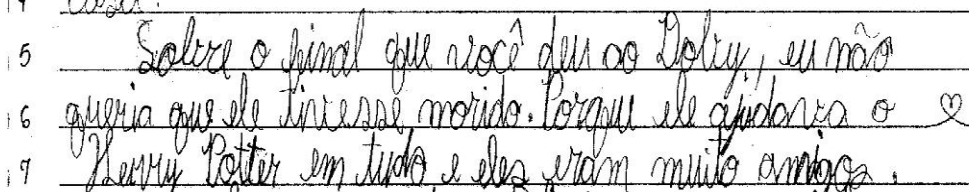 casa.
15 Sobre o final que você deu ao Doby, eu não
16 queria que ele tivesse morido. Porque ele ajudava o ♡
17 Herry Potter em tudo e eles eram muito amigos.